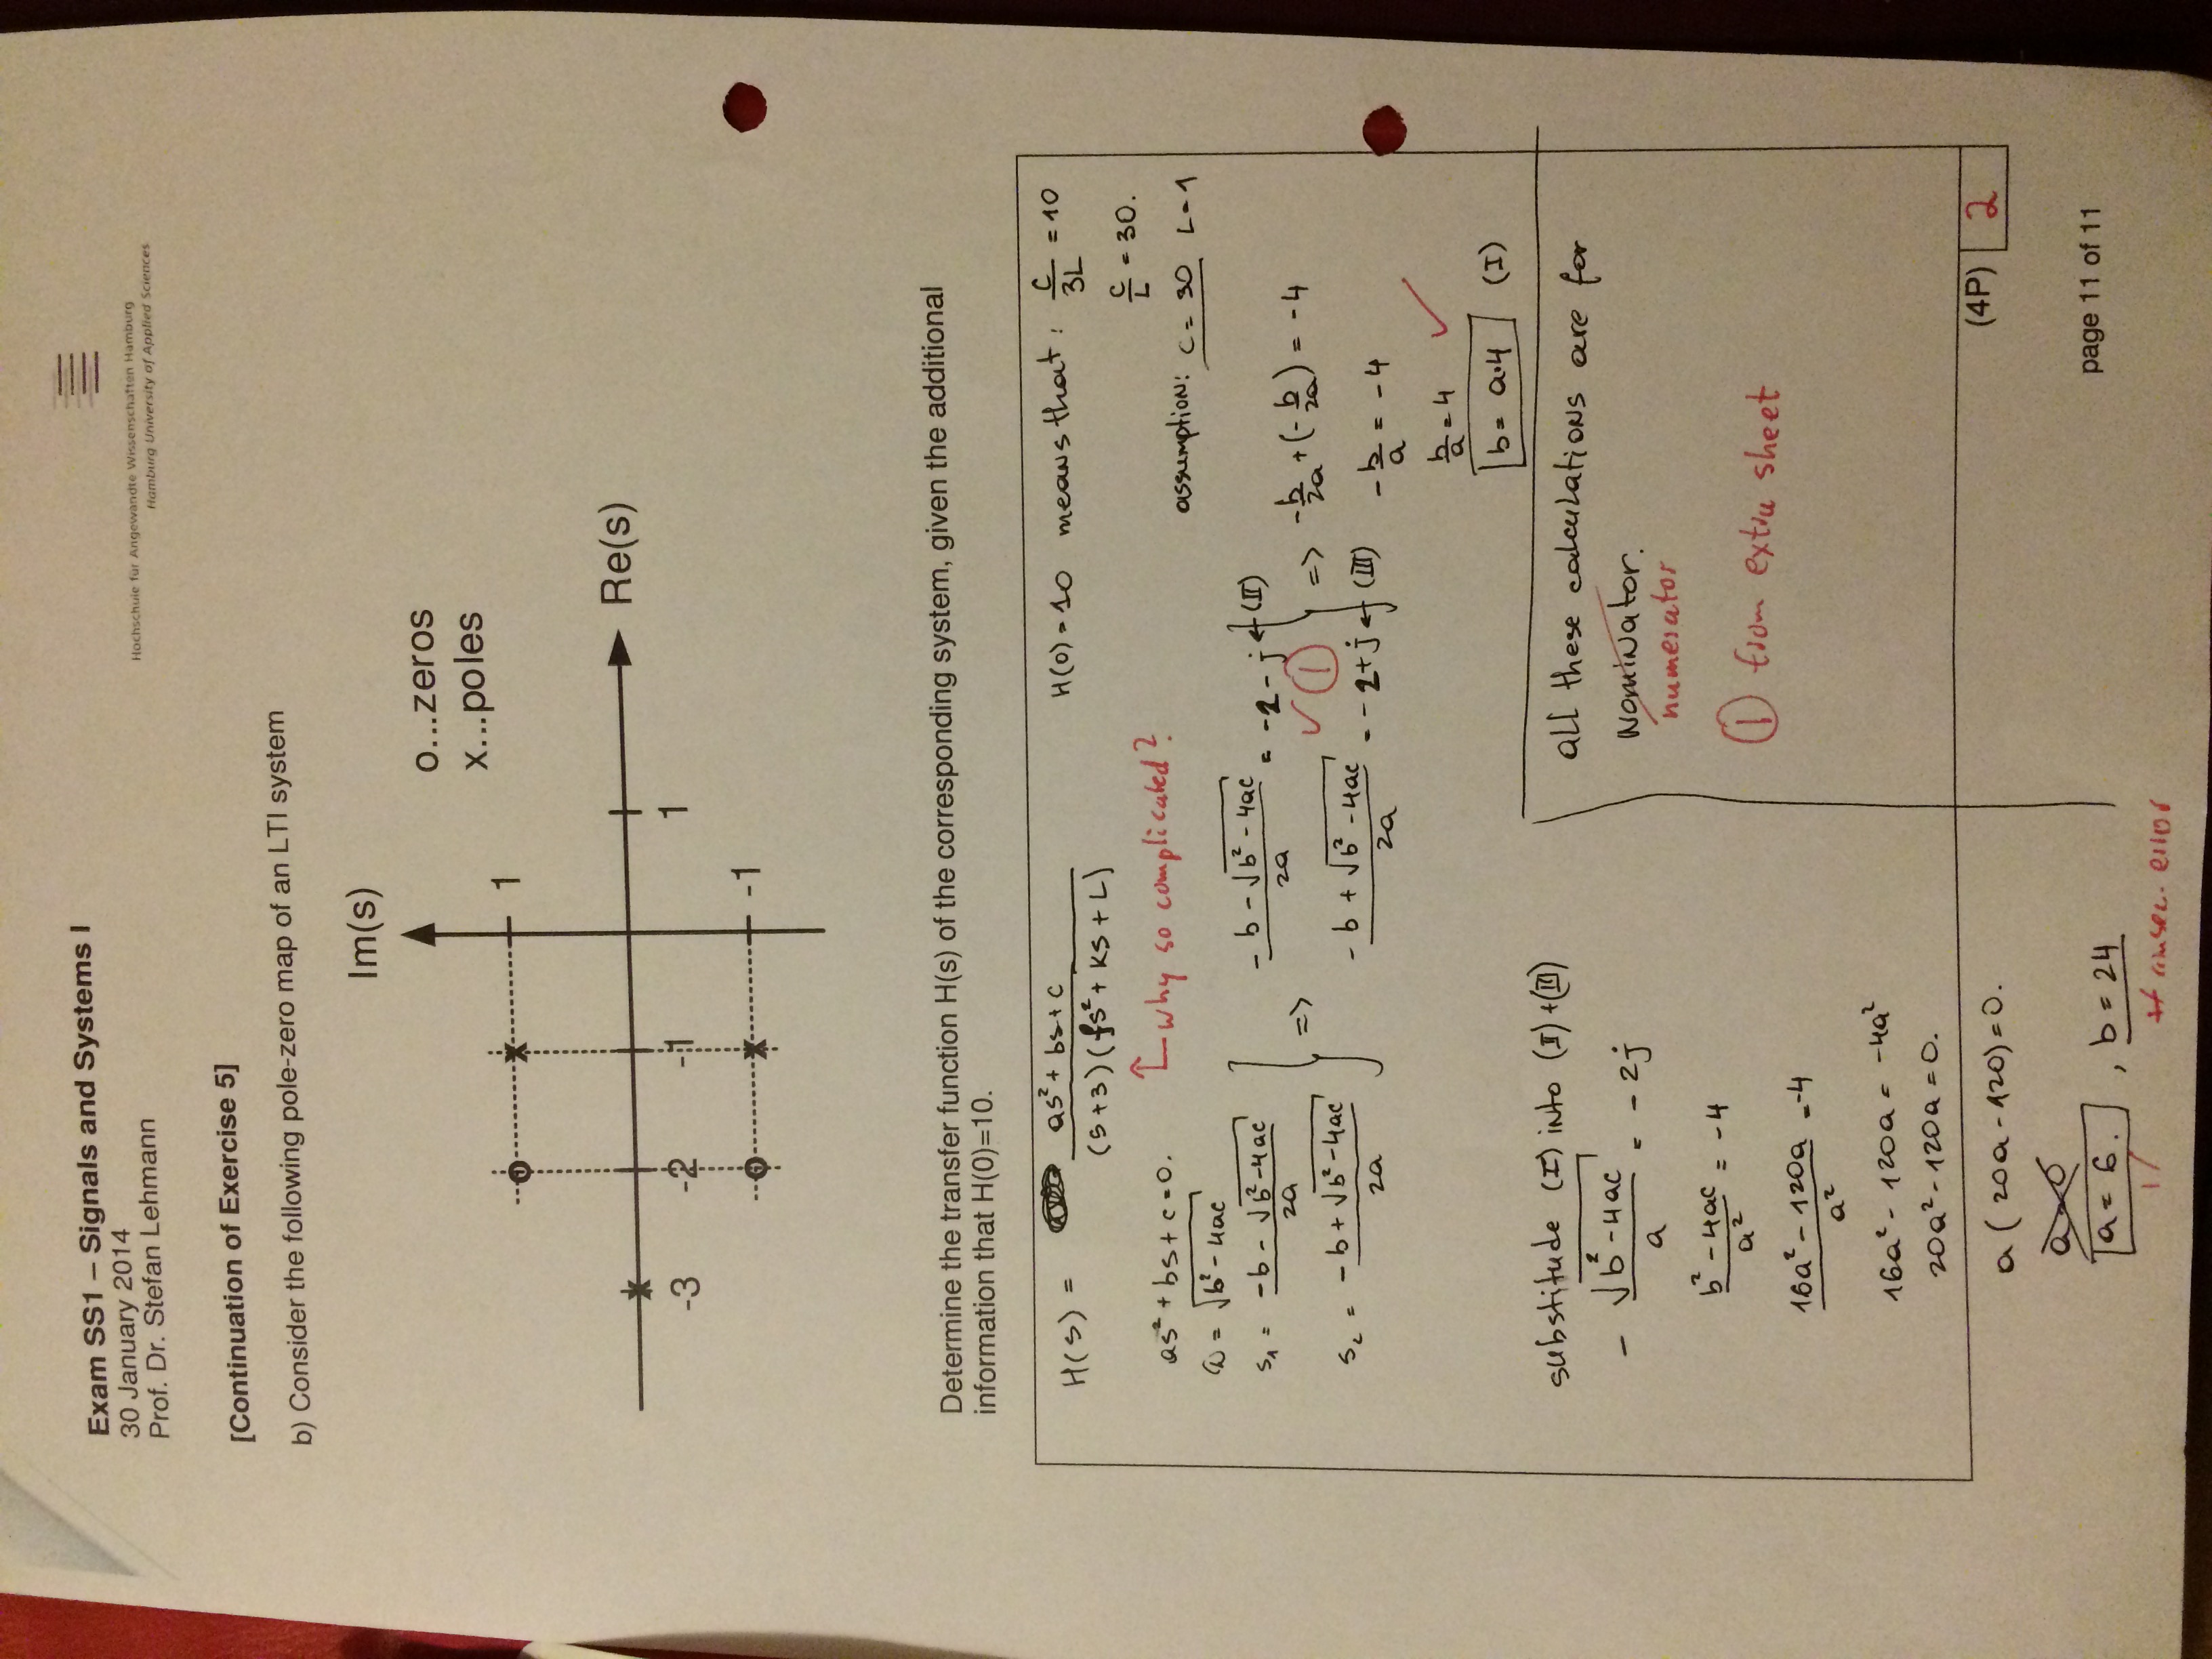 Exam SS1 – Signals and Systems I
30 January 2014
Prof. Dr. Stefan Lehmann
Hochschule für Angewandte Wissenschaften Hamburg
Hamburg University of Applied Sciences
[Continuation of Exercise 5]
b) Consider the following pole-zero map of an LTI system
Im(s)
o...zeros
x...poles
1
Re(s)
-3 -2 -1 1
-1
Determine the transfer function H(s) of the corresponding system, given the additional
information that H(0)=10.
H(s) = (as² + bs + c) / ((s+3)(fs² + ks + L))
H(0) = 10 means that: c/3L = 10
c/L = 30.
why so complicated?
assumption: c = 30 L = 1
as² + bs + c = 0.
= √(b² - 4ac)
s₁ = (-b - √(b² - 4ac)) / 2a
s₂ = (-b + √(b² - 4ac)) / 2a
=> (-b - √(b² - 4ac)) / 2a = -2 - j ← (II)
✓ ①
(-b + √(b² - 4ac)) / 2a = -2 + j ← (III)
=> -b/2a + (-b/2a) = -4
-b/a = -4
b/a = 4 ✓
b = a·4 (I)
substitude (I) into (II) + (III)
- √(b² - 4ac) / a = -2j
(b² - 4ac) / a² = -4
(16a² - 120a) / a² = -4
16a² - 120a = -4a²
20a² - 120a = 0.
a (20a - 120) = 0.
a = 6. , b = 24
error
all these calculations are for
nominator.
numerator
① from extra sheet
(4P) 2
page 11 of 11